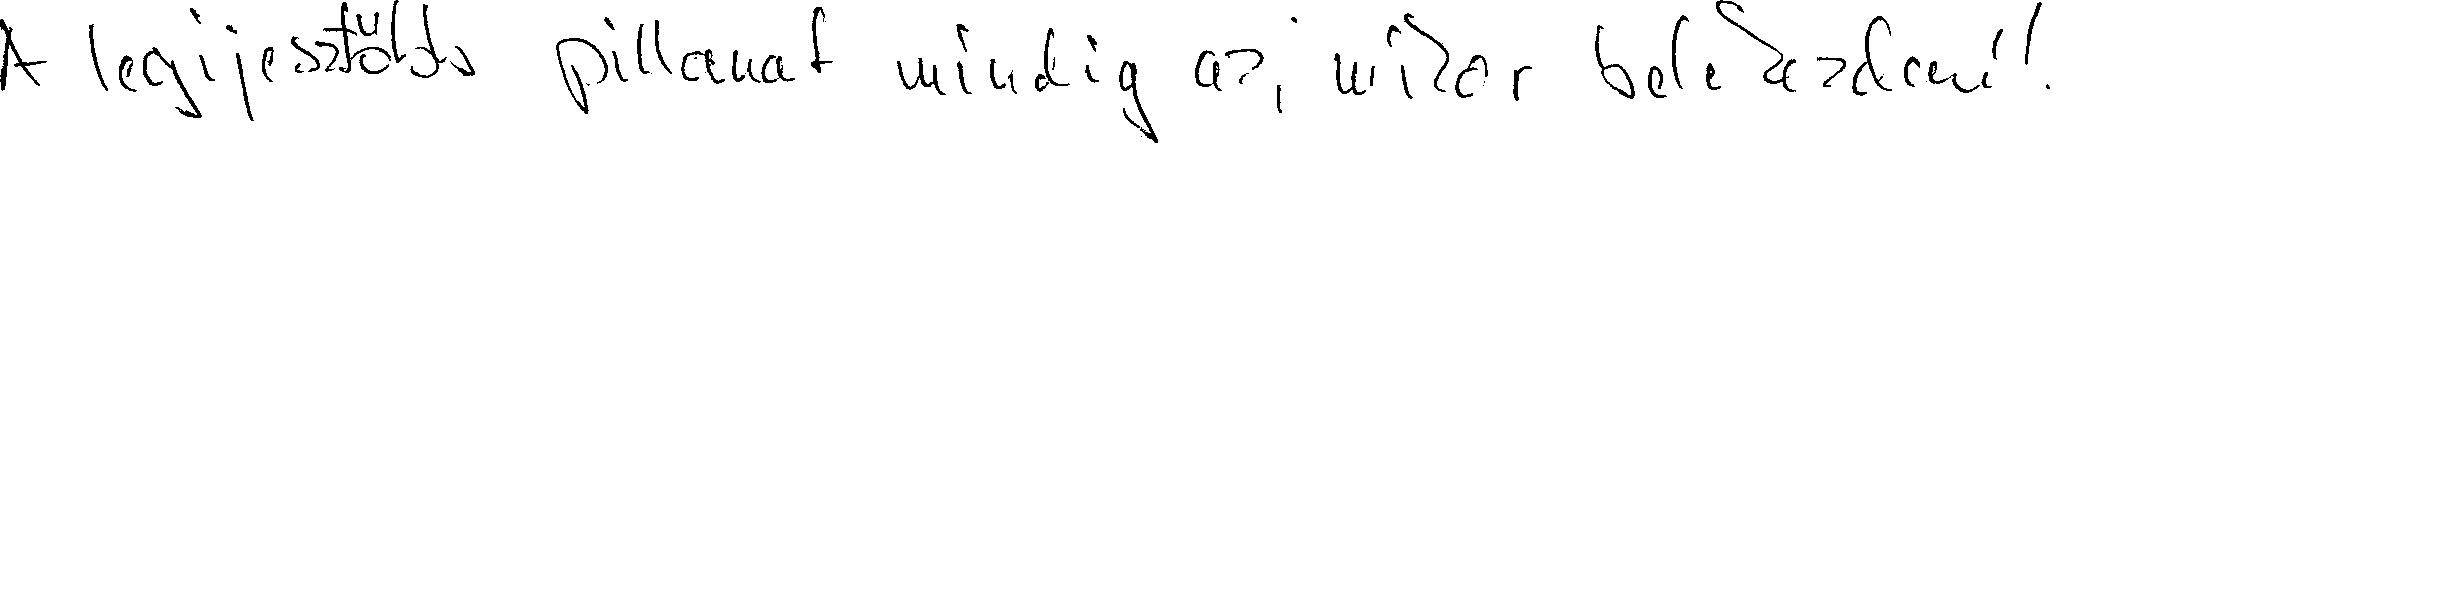 A legijesztőbb pillanat mindig az, mikor belekezdeni!